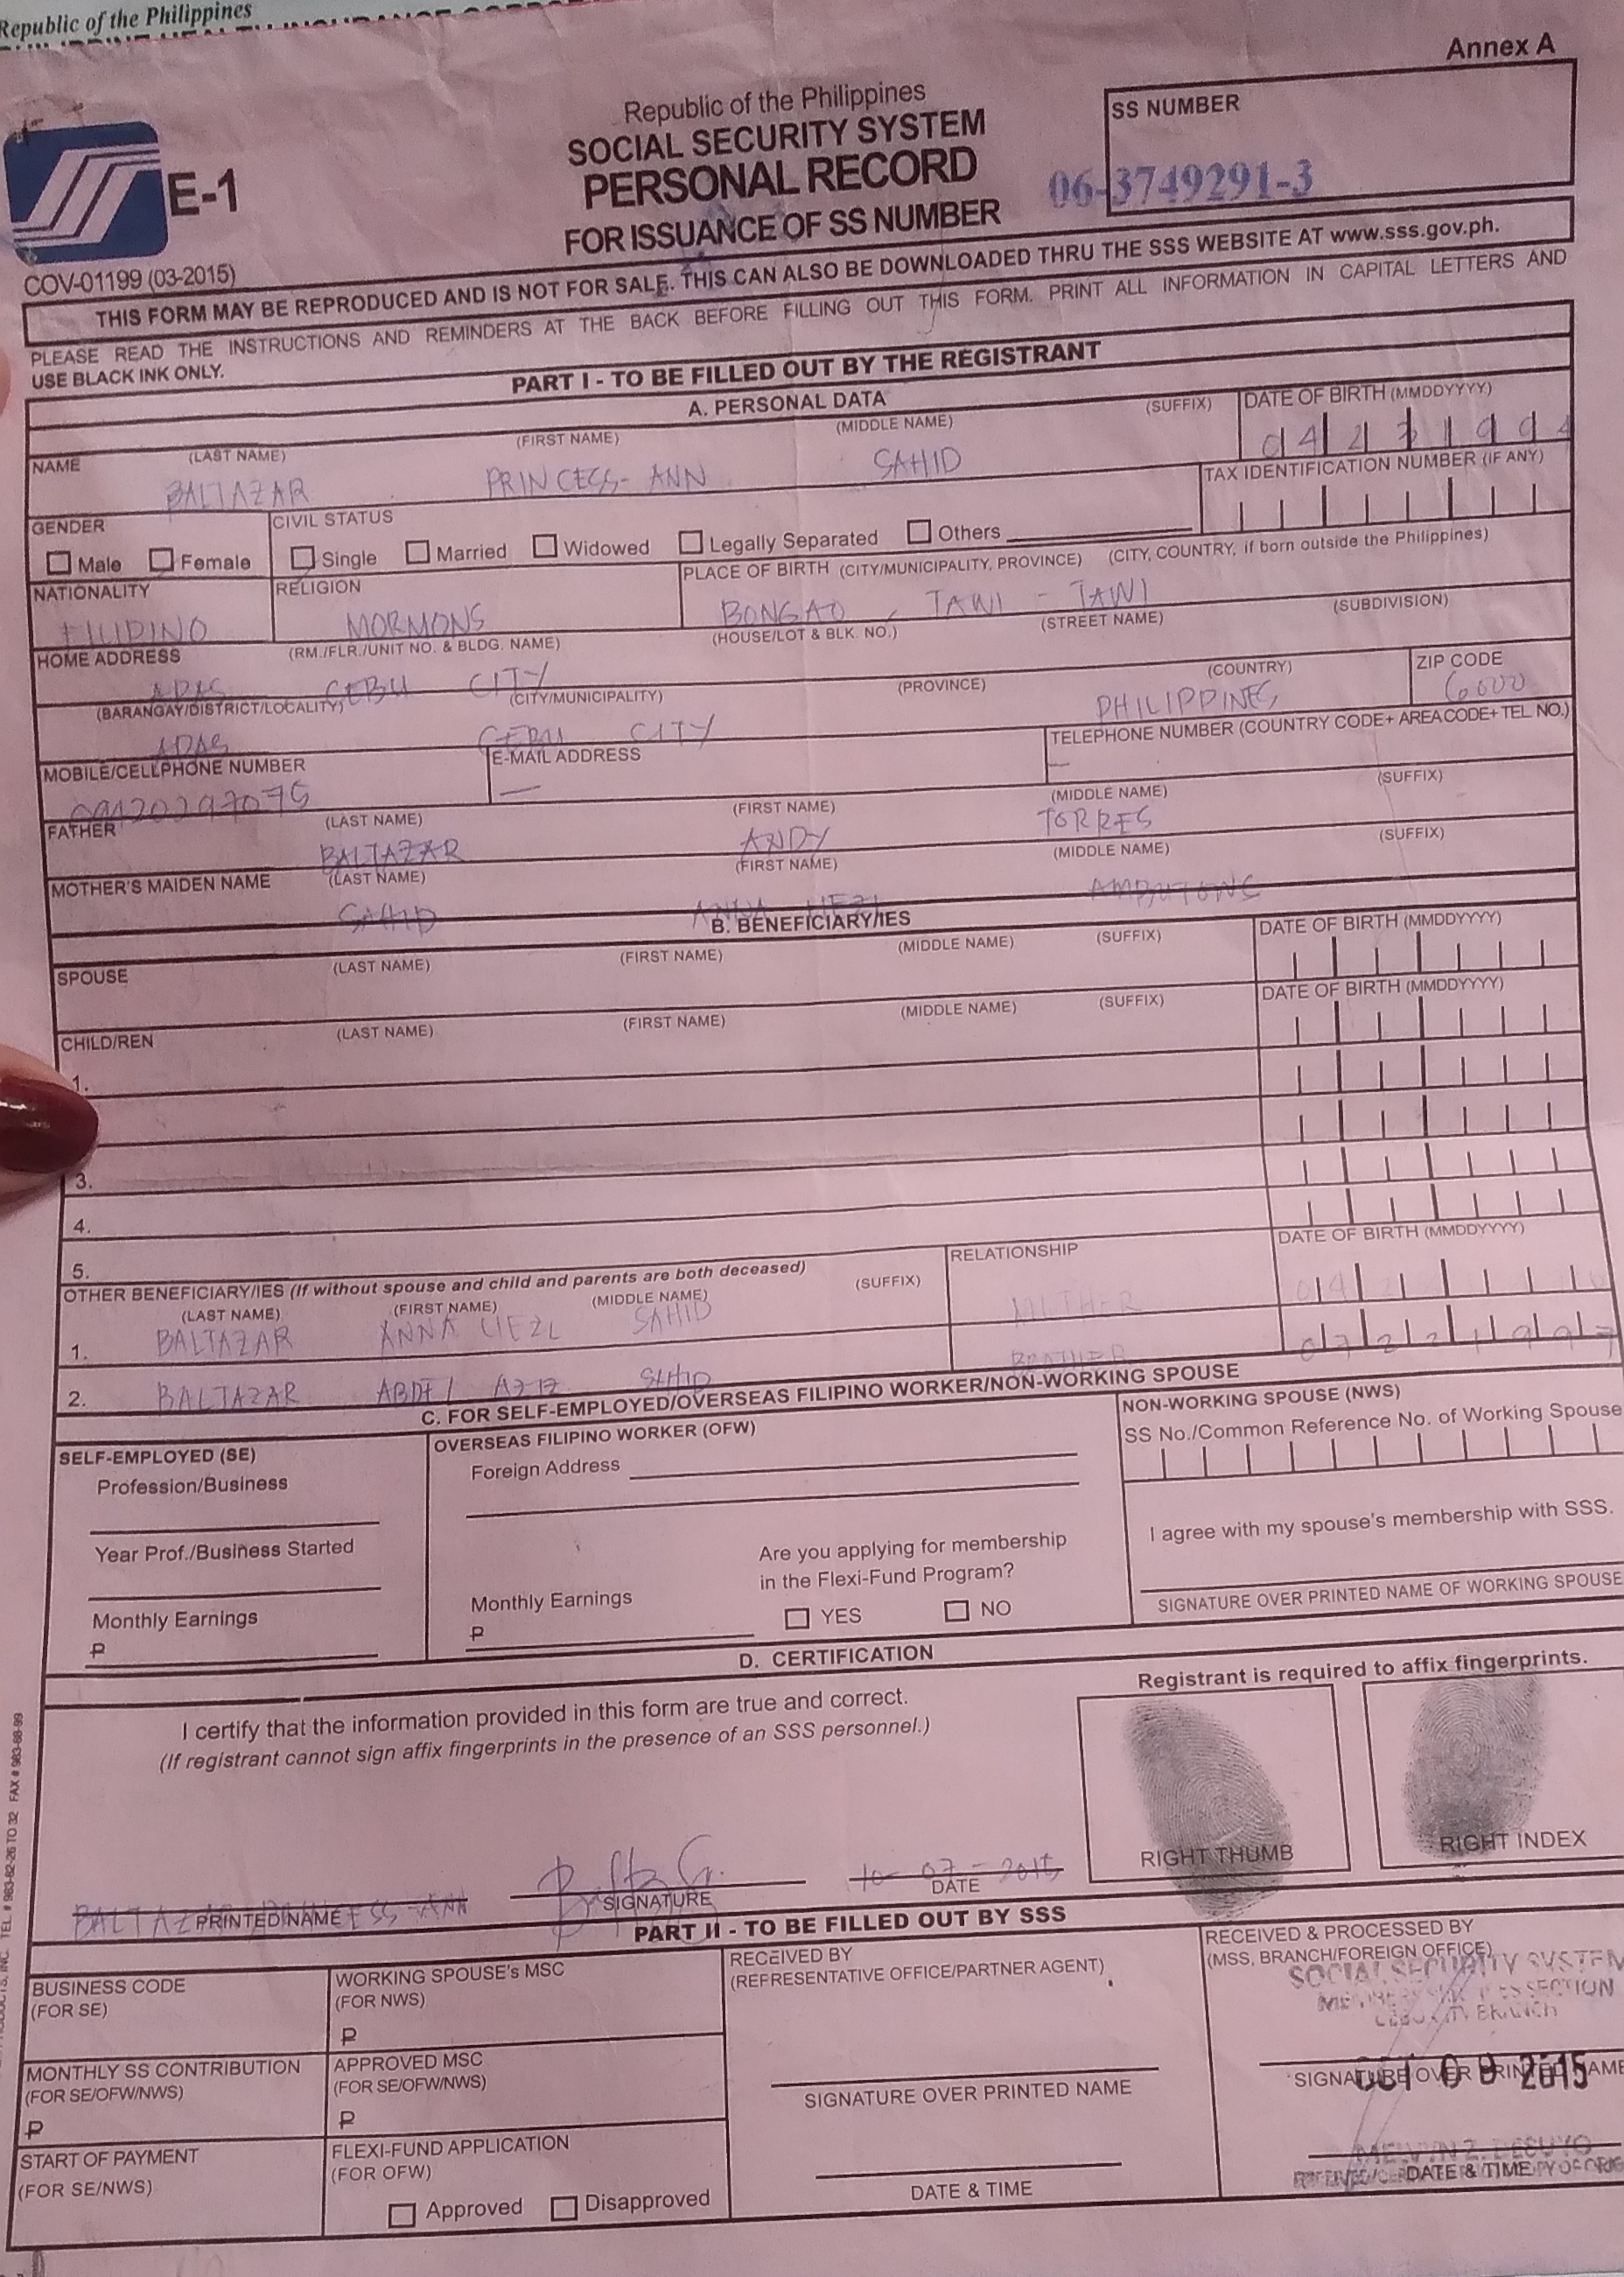 Republic of the Philippines
Annex A
E-1
COV-01199 (03-2015)
Republic of the Philippines
SOCIAL SECURITY SYSTEM
PERSONAL RECORD
FOR ISSUANCE OF SS NUMBER
SS NUMBER
06-3749291-3
THIS FORM MAY BE REPRODUCED AND IS NOT FOR SALE. THIS CAN ALSO BE DOWNLOADED THRU THE SSS WEBSITE AT www.sss.gov.ph.
PLEASE READ THE INSTRUCTIONS AND REMINDERS AT THE BACK BEFORE FILLING OUT THIS FORM. PRINT ALL INFORMATION IN CAPITAL LETTERS AND
USE BLACK INK ONLY.
PART I - TO BE FILLED OUT BY THE REGISTRANT
A. PERSONAL DATA
NAME (LAST NAME) (FIRST NAME) (MIDDLE NAME) (SUFFIX) DATE OF BIRTH (MMDDYYYY)
04231994
BALTAZAR PRINCESS-ANN SAHID
TAX IDENTIFICATION NUMBER (IF ANY)
GENDER CIVIL STATUS
Male Female Single Married Widowed Legally Separated Others
NATIONALITY RELIGION PLACE OF BIRTH (CITY/MUNICIPALITY, PROVINCE) (CITY, COUNTRY, if born outside the Philippines)
FILIPINO MORMONS BONGAO, TAWI - TAWI
HOME ADDRESS (RM./FLR./UNIT NO. & BLDG. NAME) (HOUSE/LOT & BLK. NO.) (STREET NAME) (SUBDIVISION)
CEBU CITY
(BARANGAY/DISTRICT/LOCALITY) (CITY/MUNICIPALITY) (PROVINCE) (COUNTRY) ZIP CODE
CEBU CITY PHILIPPINES 6000
MOBILE/CELLPHONE NUMBER E-MAIL ADDRESS TELEPHONE NUMBER (COUNTRY CODE+ AREA CODE+ TEL NO.)
09420297075 — —
FATHER (LAST NAME) (FIRST NAME) (MIDDLE NAME) (SUFFIX)
BALTAZAR ANDY TORRES
MOTHER'S MAIDEN NAME (LAST NAME) (FIRST NAME) (MIDDLE NAME) (SUFFIX)
SAHID ANNA LIEZL
B. BENEFICIARY/IES
SPOUSE (LAST NAME) (FIRST NAME) (MIDDLE NAME) (SUFFIX) DATE OF BIRTH (MMDDYYYY)
CHILD/REN (LAST NAME) (FIRST NAME) (MIDDLE NAME) (SUFFIX) DATE OF BIRTH (MMDDYYYY)
1.
3.
4.
5.
OTHER BENEFICIARY/IES (If without spouse and child and parents are both deceased) RELATIONSHIP DATE OF BIRTH (MMDDYYYY)
(LAST NAME) (FIRST NAME) (MIDDLE NAME) (SUFFIX)
1. BALTAZAR ANNA LIEZL SAHID MOTHER
2. BALTAZAR ABDEL AZIZ SAHID BROTHER 07221997
C. FOR SELF-EMPLOYED/OVERSEAS FILIPINO WORKER/NON-WORKING SPOUSE
SELF-EMPLOYED (SE)
Profession/Business
Year Prof./Business Started
Monthly Earnings
₱
OVERSEAS FILIPINO WORKER (OFW)
Foreign Address
Monthly Earnings
₱
Are you applying for membership
in the Flexi-Fund Program?
YES NO
NON-WORKING SPOUSE (NWS)
SS No./Common Reference No. of Working Spouse
I agree with my spouse's membership with SSS.
SIGNATURE OVER PRINTED NAME OF WORKING SPOUSE
D. CERTIFICATION
I certify that the information provided in this form are true and correct.
(If registrant cannot sign affix fingerprints in the presence of an SSS personnel.)
Registrant is required to affix fingerprints.
RIGHT THUMB RIGHT INDEX
BALTAZAR PRINCESS-ANN 10-07-2015
PRINTED NAME SIGNATURE DATE
PART II - TO BE FILLED OUT BY SSS
BUSINESS CODE
(FOR SE)
WORKING SPOUSE's MSC
(FOR NWS)
₱
MONTHLY SS CONTRIBUTION
(FOR SE/OFW/NWS)
₱
APPROVED MSC
(FOR SE/OFW/NWS)
₱
START OF PAYMENT
(FOR SE/NWS)
FLEXI-FUND APPLICATION
(FOR OFW)
Approved Disapproved
RECEIVED BY
(REPRESENTATIVE OFFICE/PARTNER AGENT)
SIGNATURE OVER PRINTED NAME
DATE & TIME
RECEIVED & PROCESSED BY
(MSS, BRANCH/FOREIGN OFFICE)
SOCIAL SECURITY SYSTEM
SECTION
CEBU CITY BRANCH
SIGNATURE OVER PRINTED NAME
OCT 09 2015
DATE & TIME
TEL. # 983-82-26 TO 32 FAX # 983-88-99